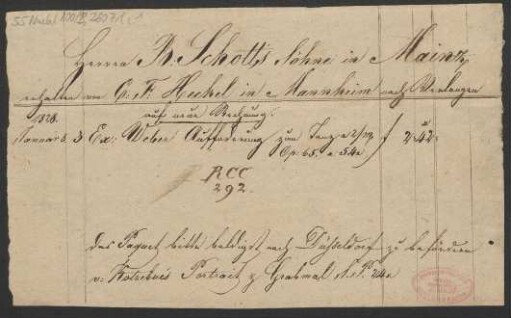 Herrn B. Schott's Söhne in Mainz,
erhalten von C. F. Heckel in Mannheim nach Verlangen
auf neue Rechnung.
1828.
Januar 3. 3 Ex: Weber Aufforderung zum Tanz a 2/mg 2. 42.
Op. 65. a 54x
RCC
292.
Das Paquet bitte baldigst nach Düsseldorf zu befördern
v. Kotzebue's Portrait z Grabmal 24x